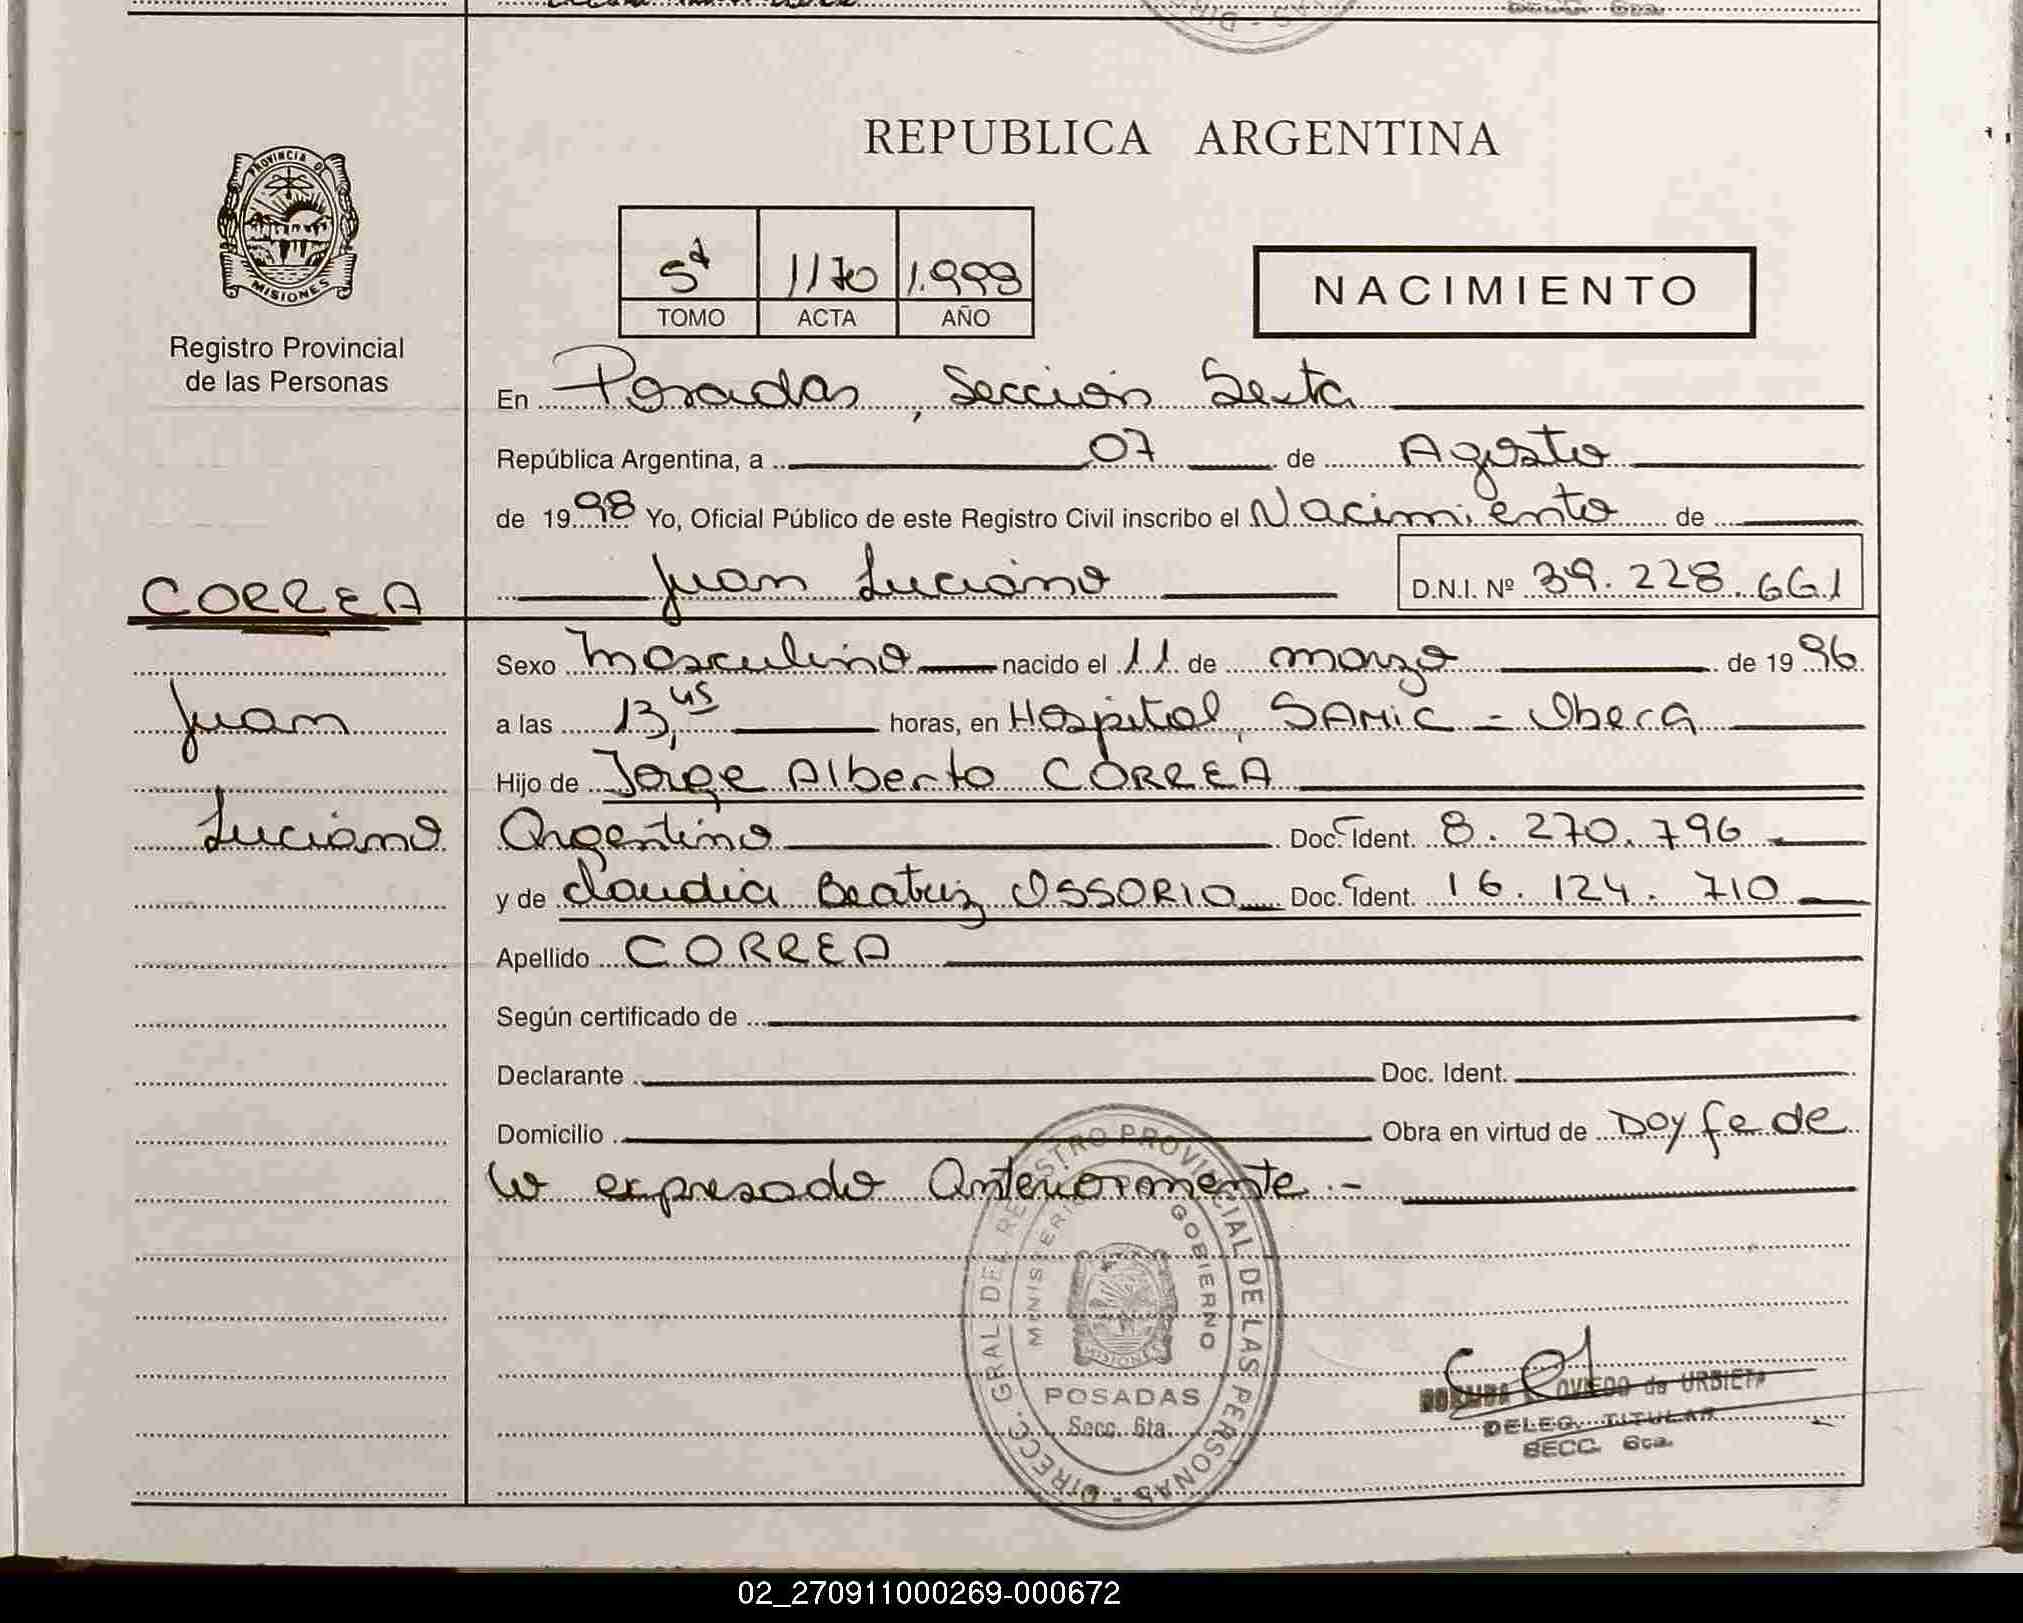 REPUBLICA ARGENTINA
PROVINCIA DE
MISIONES
Registro Provincial
de las Personas
5º 1170 1.998
TOMO ACTA AÑO
NACIMIENTO
En Posadas, Sección Sexta
República Argentina, a 07 de Agosto
de 1998 Yo, Oficial Público de este Registro Civil inscribo el Nacimiento de
Juan Luciano D.N.I. Nº 39.228.661
CORREA
Juan
Luciano
Sexo Masculino nacido el 11 de marzo de 1996
a las 13,45 horas, en Hospital, SAMIC - Oberá
Hijo de Jorge Alberto CORREA
Argentino Doc. Ident. 8.270.796
y de Claudia Beatriz OSSORIO Doc. Ident. 16.124.710
Apellido CORREA
Según certificado de
Declarante Doc. Ident.
Domicilio Obra en virtud de Doy fe de
lo expresado Anteriormente.-
DIRECC. GRAL DEL REGISTRO PROVINCIAL DE LAS PERSONAS
MINISTERIO GOBIERNO
MISIONES
POSADAS
Secc. 6ta.
OVIEDO de URBIETA
DELEG. TITULAR
SECC. 6ta.
02_270911000269-000672